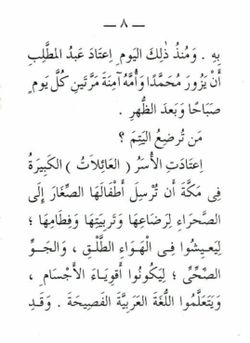 — ٨ —
بِهِ . وَمُنذُ ذٰلِكَ اليَومِ اِعتَادَ عَبدُ المطَّلِبِ
أَنْ يَزُورَ مُحَمَّدًا وَأُمَّهُ آمِنَةَ مَرَّتَينِ كُلَّ يَومٍ
صَبَاحًا وَبَعدَ الظُّهرِ .
مَن تُرضِعُ اليَتِمَ ؟
اِعتَادَتِ الأُسَرُ ( العَائِلَاتُ ) الكَبِيرَةُ
فِى مَكَّةَ أَن تُرْسِلَ أَطفَالَهَا الصِّغَارَ إِلَى
الصَّحرَاءِ لِرَضَاعِهَا وَتَربِيَتِهَا وَفِطَامِهَا ؛
لِيَعِيشُوا فِـى الْهَـوَاءِ الطَّلْـقِ ، وَالجَـوِّ
الصِّحِّىِّ ؛ لِيَكُونُوا أَقوِيَـاءَ الأَجسَـامِ ،
وَيَتَعَلَّمُوا اللُّغَةَ العَرَبِيَّةَ الفَصِيحَةَ . وَقَـدِ